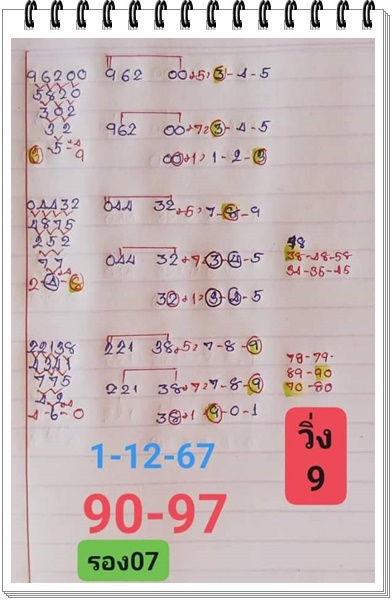 96200 962 00+5=3-4-5
5820
302
32 962 00+7=3-4-5
-5-
9 00+1=1-2-3
04432 044 32+5=7-8-9
4875
252 48
77 044 32+7=3-4-5 38-48-58
2-4-6 34-35-45
32+1=3-4-5
22138 221 38+5=7-8-9
4341 78-79-
775 221 38+7=7-8-9 89-90
42 70-80
4-6-0 38+1=9-0-1
1-12-67
วิ่ง
9
90-97
รอง07